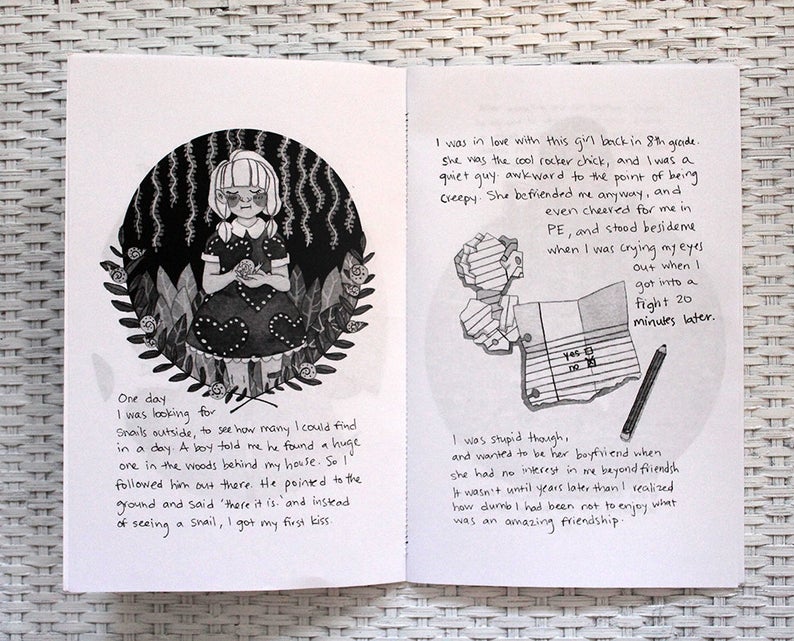 One day
I was looking for
snails outside, to see how many I could find
in a day. A boy told me he found a huge
one in the woods behind my house. So I
followed him out there. He pointed to the
ground and said 'there it is.' and instead
of seeing a snail, I got my first kiss.
I was in love with this girl back in 8th grade.
She was the cool rocker chick, and I was a
quiet guy. awkward to the point of being
creepy. She befriended me anyway, and
even cheered for me in
PE, and stood beside me
when I was crying my eyes
out when I
got into a
fight 20
minutes later.
yes
no
I was stupid though,
and wanted to be her boyfriend when
she had no interest in me beyond friendsh
It wasn't until years later than I realized
how dumb I had been not to enjoy what
was an amazing friendship.